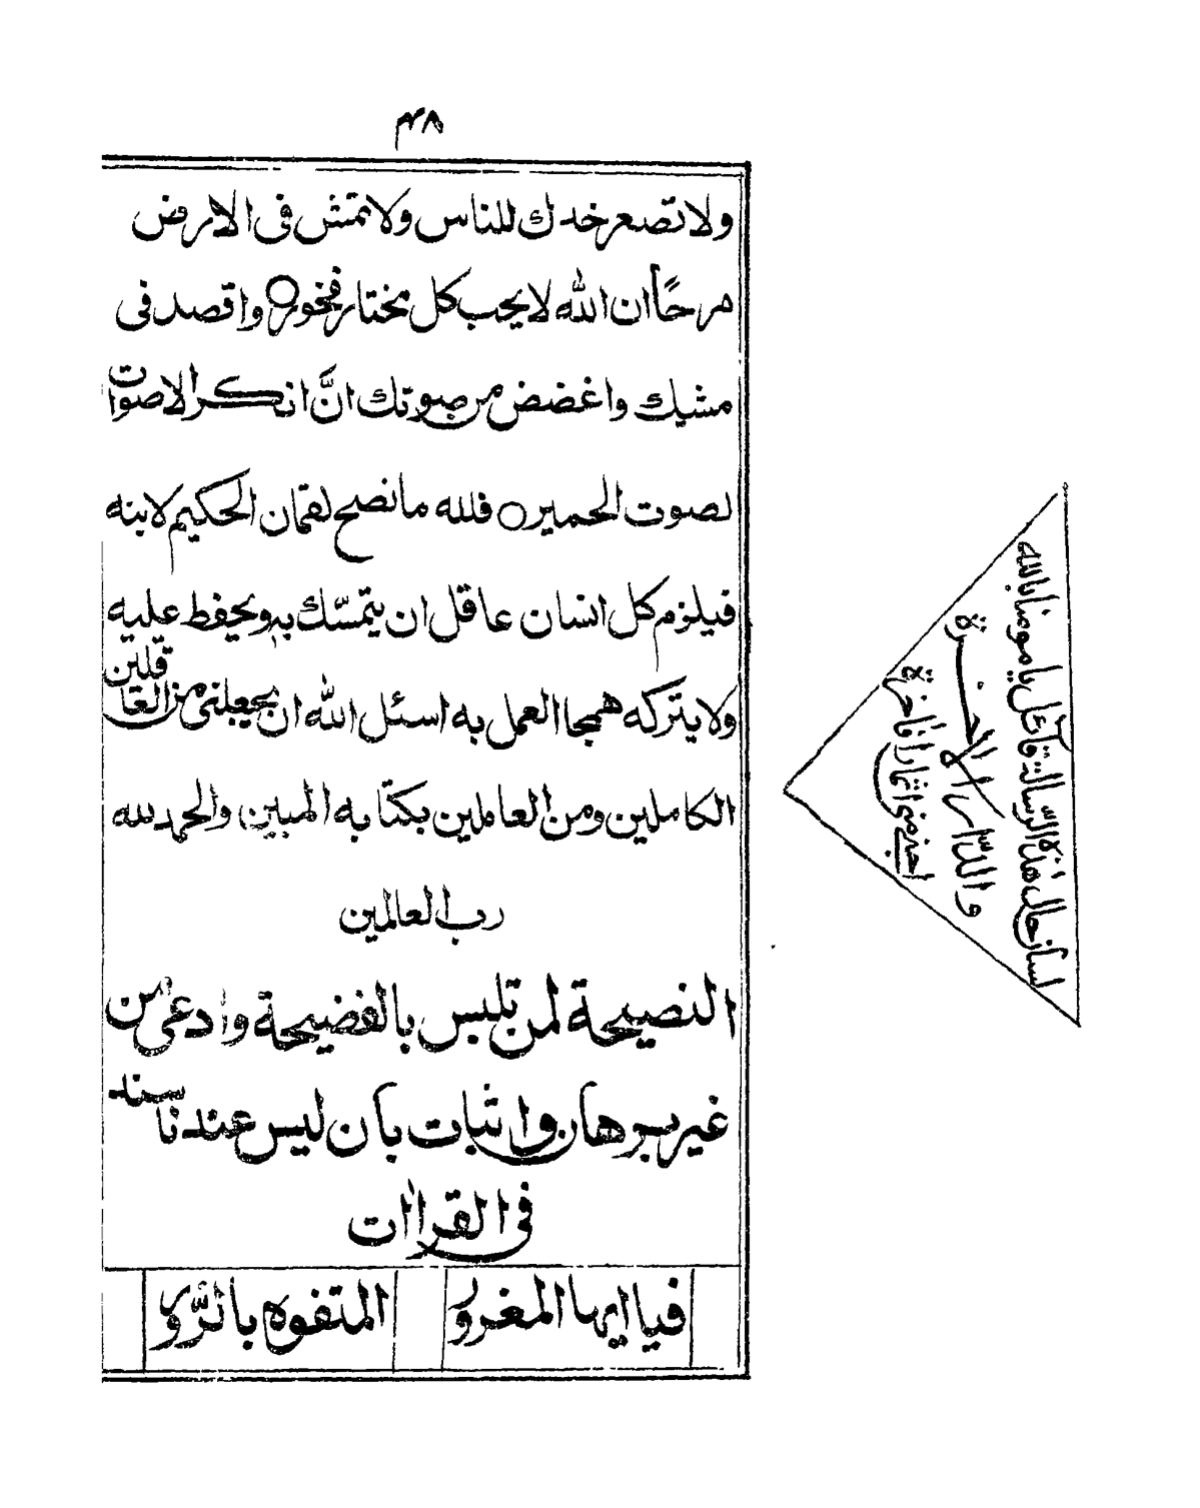 ۴۸
ولا تصعر خدك للناس ولا تمش فى الارض
مرحًا ان الله لا يحب كل مختار فخور ○ واقصد فى
مشيك واغضض من صوتك انَّ انكر الاصوات
لصوت الحمير ○ فلله ما نصح لقمان الحكيم لابنه
فيلزم كل انسان عاقل ان يتمسّك به ويحفظ عليه
ولا يتركه همجا العمل به اسئل الله ان يجعلنى من العاقلين
الكاملين ومن العاملين بكتابه المبين والحمد لله
رب العالمين
النصيحة لمن تلبس بالفضيحة وادعى من
غير برهان واثبات بان ليس عندنا سند
فى القراات
فيا ايها المغرور
المتفوه بالزّور
لسان حال هذه الرّسالة قائل يا مومنا بالله
والدّار الاخرة
اجنِ منى اثمارا فاخرة